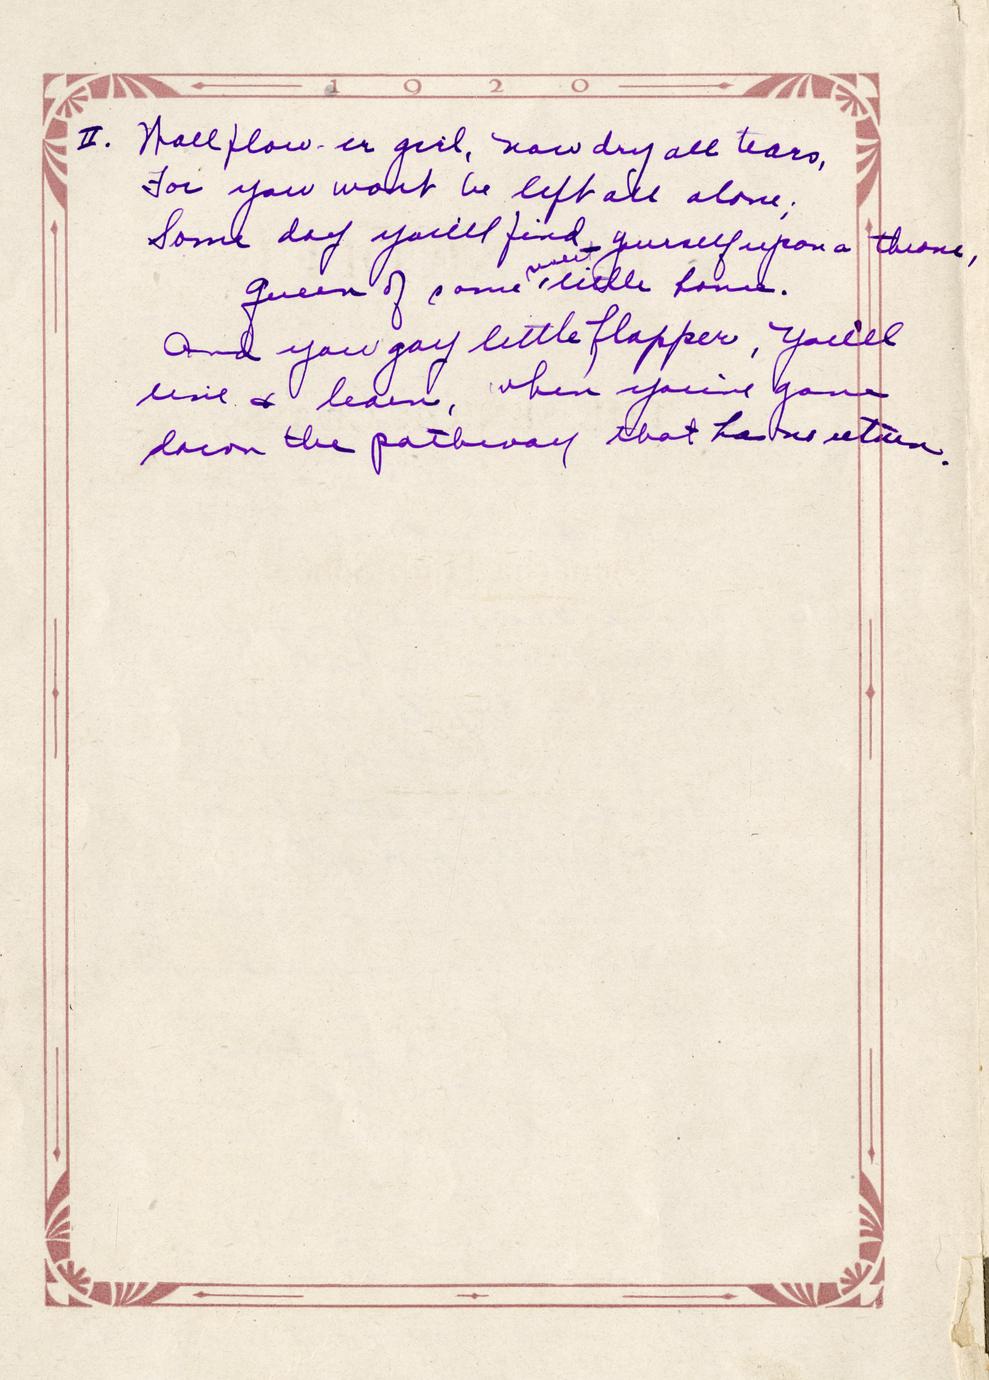 1920
II. Wall flow-er girl, now dry all tears,
For you wont be left all alone;
Some day you'll find yourself upon a throne,
queen of some sweet little home.
And you gay little flapper, you'll
live & learn, when you've gone
down the pathway that has no return.